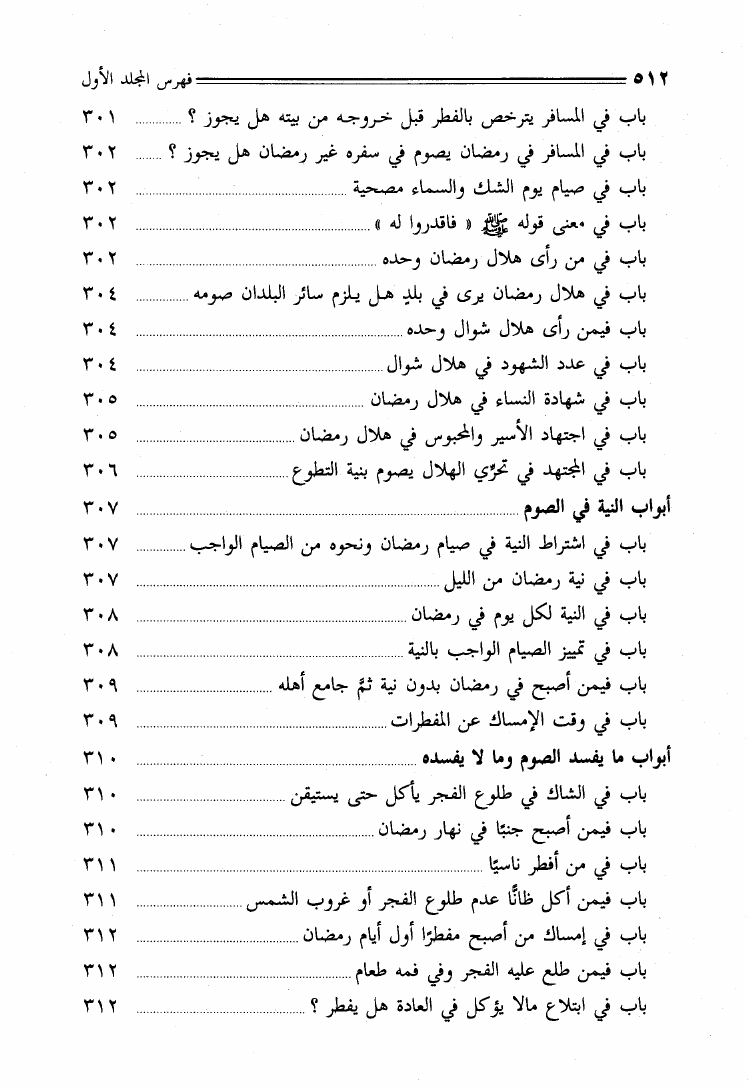 ٥١٢ فهرس المجلد الأول
باب في المسافر يترخص بالفطر قبل خروجه من بيته هل يجوز ؟ ٣٠١
باب في المسافر في رمضان يصوم في سفره غير رمضان هل يجوز ؟ ٣٠٢
باب في صيام يوم الشك والسماء مصحية ٣٠٢
باب في معنى قوله ﷺ « فاقدروا له » ٣٠٢
باب في من رأى هلال رمضان وحده ٣٠٢
باب في هلال رمضان يرى في بلدٍ هل يلزم سائر البلدان صومه ٣٠٤
باب فيمن رأى هلال شوال وحده ٣٠٤
باب في عدد الشهود في هلال شوال ٣٠٤
باب في شهادة النساء في هلال رمضان ٣٠٥
باب في اجتهاد الأسير والمحبوس في هلال رمضان ٣٠٥
باب في المجتهد في تحرِّي الهلال يصوم بنية التطوع ٣٠٦
أبواب النية في الصوم ٣٠٧
باب في اشتراط النية في صيام رمضان ونحوه من الصيام الواجب ٣٠٧
باب في نية رمضان من الليل ٣٠٧
باب في النية لكل يوم في رمضان ٣٠٨
باب في تمييز الصيام الواجب بالنية ٣٠٨
باب فيمن أصبح في رمضان بدون نية ثمَّ جامع أهله ٣٠٩
باب في وقت الإمساك عن المفطرات ٣٠٩
أبواب ما يفسد الصوم وما لا يفسده ٣١٠
باب في الشاك في طلوع الفجر يأكل حتى يستيقن ٣١٠
باب فيمن أصبح جنبًا في نهار رمضان ٣١٠
باب في من أفطر ناسيًا ٣١١
باب فيمن أكل ظانًّا عدم طلوع الفجر أو غروب الشمس ٣١١
باب في إمساك من أصبح مفطرًا أول أيام رمضان ٣١٢
باب فيمن طلع عليه الفجر وفي فمه طعام ٣١٢
باب في ابتلاع مالا يؤكل في العادة هل يفطر ؟ ٣١٢